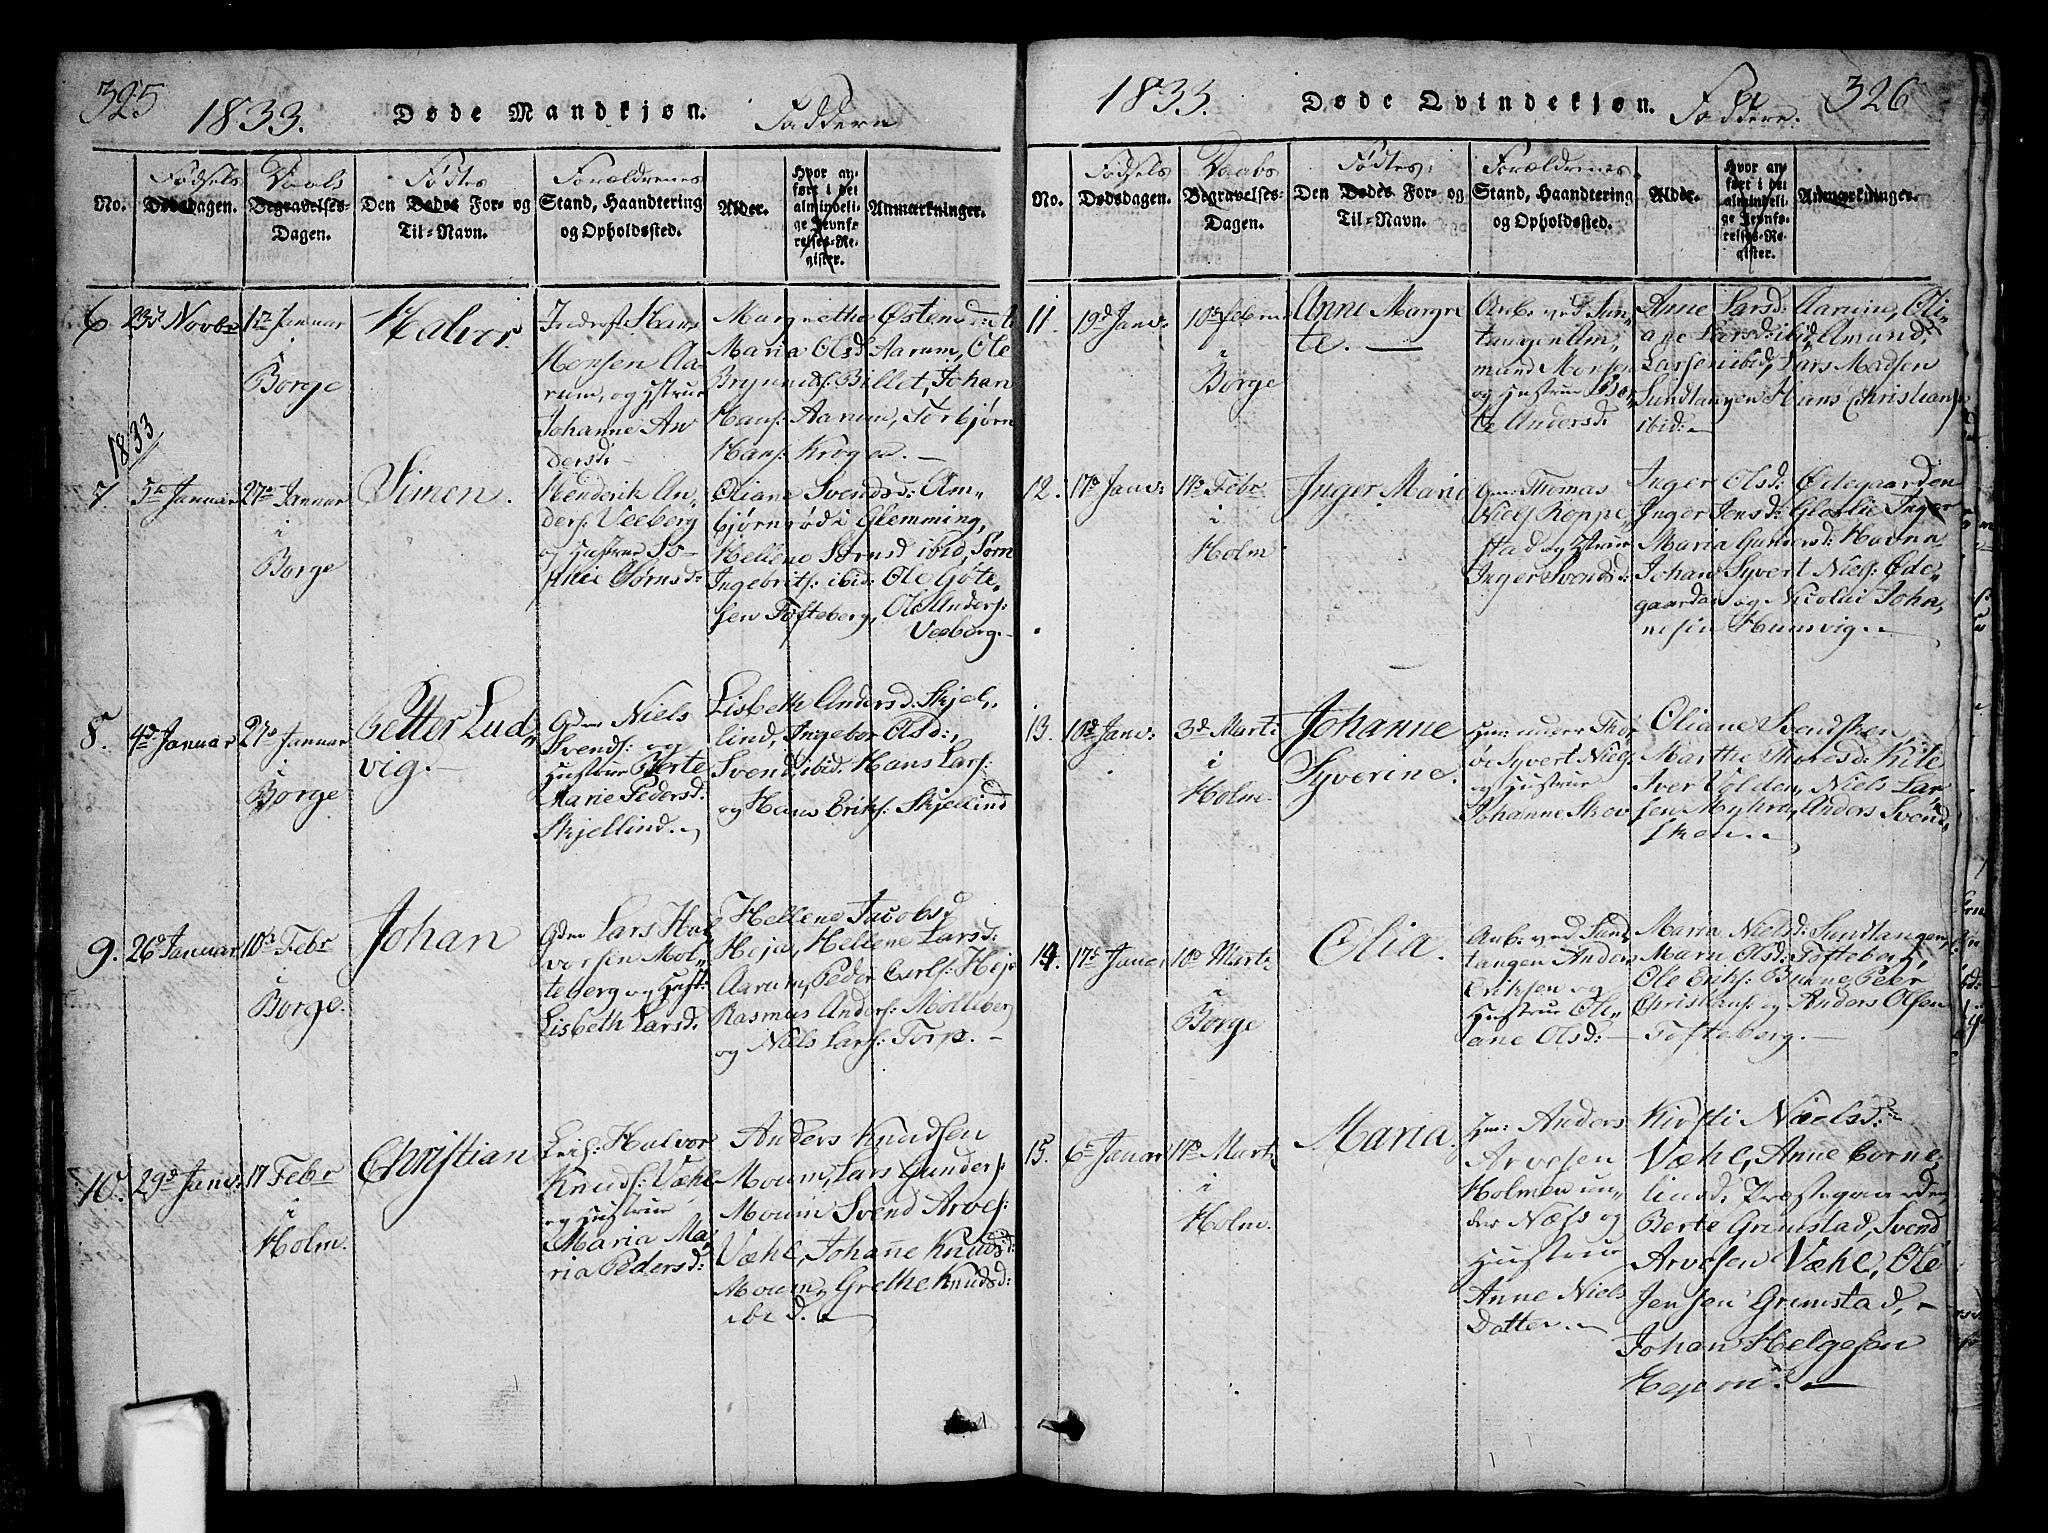 325
1833.
Døde Mandkjøn.
Faddere
No.
Fødsels
Dødsdagen.
Daabs
Begravelses-
Dagen.
Fødtes
Den Dødes For- og
Til-Navn.
Forældrenes
Stand, Haandtering
og Opholdssted.
Alder.
Hvor an-
ført i det
almindeli-
ge Jevnfø-
relses-Re-
gister.
Anmærkninger.
6
23d Novbr
1ste Januar
i
Borge
Halvor
Inderst Hans
Monsen Aa-
rum, og Hustrue
Johanne An
dersd:
Margrethe Østensdatter
Maria Olsd Aarum, Ole
Brynilds: Billet, Johan
Hans: Aarum, Torbjørn
Hans: Krogen.
1833
7.
5te Januar
27de Januar
i
Borge
Simen.
Henderik An,
ders: Veeberg
og Hustrue So-
phie Sørnsd:
Oliane Svendsd: Am-
bjørnrød i Glemming,
Hellene Sørnsd ibid, Sørn
Ingebrits: ibid: Ole Gøte-
sen Tofteberg, Ole Anders:
Veeberg.
8.
4d Januar
27d Januar
i
Borge
Petter Lud,
vig.
Gdm Niels
Svends: og
Hustrue Berte
Marie Pedersd.
Skjellind.
Lisbeth Andersd: Skjel,
lind, Ingebor Olsd:,
Svend ibid: Hans Lars:
og Hans Eriks: Skjellind
9.
26d Januar
10d Febr
i
Borge.
Johan
Gdm Lars Hal
vorsen Mol,
teberg og Hust:
Lisbeth Larsd:
Hellene Jacobsd
Heja, Hellene Larsd:
Aarum, Peder Carls: Heje
Rasmus Anders: Molteberg
og Niels Lars: Torp.
10.
29d Janv:
17 Febr
i
Holm.
Christian
Leis: Halvor
Knuds: Væhl
og Hustrue
Maria Ma,
ria Pedersd:
Anders Knudsen
Moum, Lars Gunders:
Moum Svend Arves:
Væhl, Johanne Knudsd:
Moum, Grethe Knudsd:
ibid.
1833.
Døde Qvindekjøn.
Faddere.
326
No.
Fødsels
Dødsdagen.
Daabs
Begravelses-
Dagen.
Fødtes
Den Dødes For- og
Til-Navn.
Forældrenes
Stand, Haandtering
og Opholdssted.
Alder.
Hvor an-
ført i det
almindeli-
ge Jevnfø-
relses-Re-
gister.
Anmærkninger.
11.
19d Janv:
10d febr
i
Borge
Anne Margre
te.
Arb. ved Sun,
tangen Am,
mund Monsen
og Hustrue
te Andersd:
Anne Larsd: Aarum, Oli-
ane Larsd: ibid, Amund
Lassen ibid, Lars Madsen
Sundtangen Hans Christians:
ibid:
12.
17d Janv:
17d Febr
i
Holm
Inger Marie
Gm: Thomas
Niels Roppe,
stad og Hstrue
Inger Svendsd:
Inger Olsd: Ødegaarden
Inger Jensd: Gloslie Inger
Maria Gundersd:
Johan Syvert Niels: Øde,
gaarden og Nicolai Johan,
nesen Humvig.
13.
10d Janv:
3d Marti
i
Holm.
Johanne
Syverine.
Hm: under Thor
øe Syvert Niels:
og Hustrue
Johanne Skov
Oliane Svendsken,
Marthe Thoresd: Kile
Iver Volden, Niels Lar,
sen Myhra, Anders Svend,
sken.
14.
17d Januar
10d Marti
i
Borge
Olia.
Arb: ved Sand,
tangen Anders
Eriksen og
Hustrue Ole,
ane Olsd:
Maren Nielsd: Sundtangen
Maren Olsd: Tofteberg,
Ole Eriks: Peer
Christians: og Anders Olsen
Tofteberg.
15.
6d Januar
17d Marti
i
Holm.
Maria.
Hm: Anders
Arvesen
Holmen un,
der Næss og
Hustrue
Anne Niels
Datter.
Kirsti Nielsd:
Væhl, Anne Corne,
liusd: Præstegaarden
Berte Grimstad, Svend
Arvesen Væhl, Ole
Jensen Grimstad,
Johan Helgesen